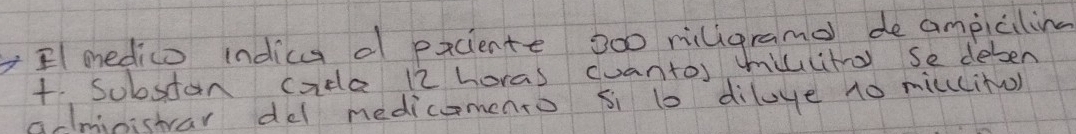 → El medico indica al paciente 300 miligramos de ampicilina
t. Substan cada 12 horas cuantos mililitros se deben
administrar del medicamento si lo diluye 10 mililitros